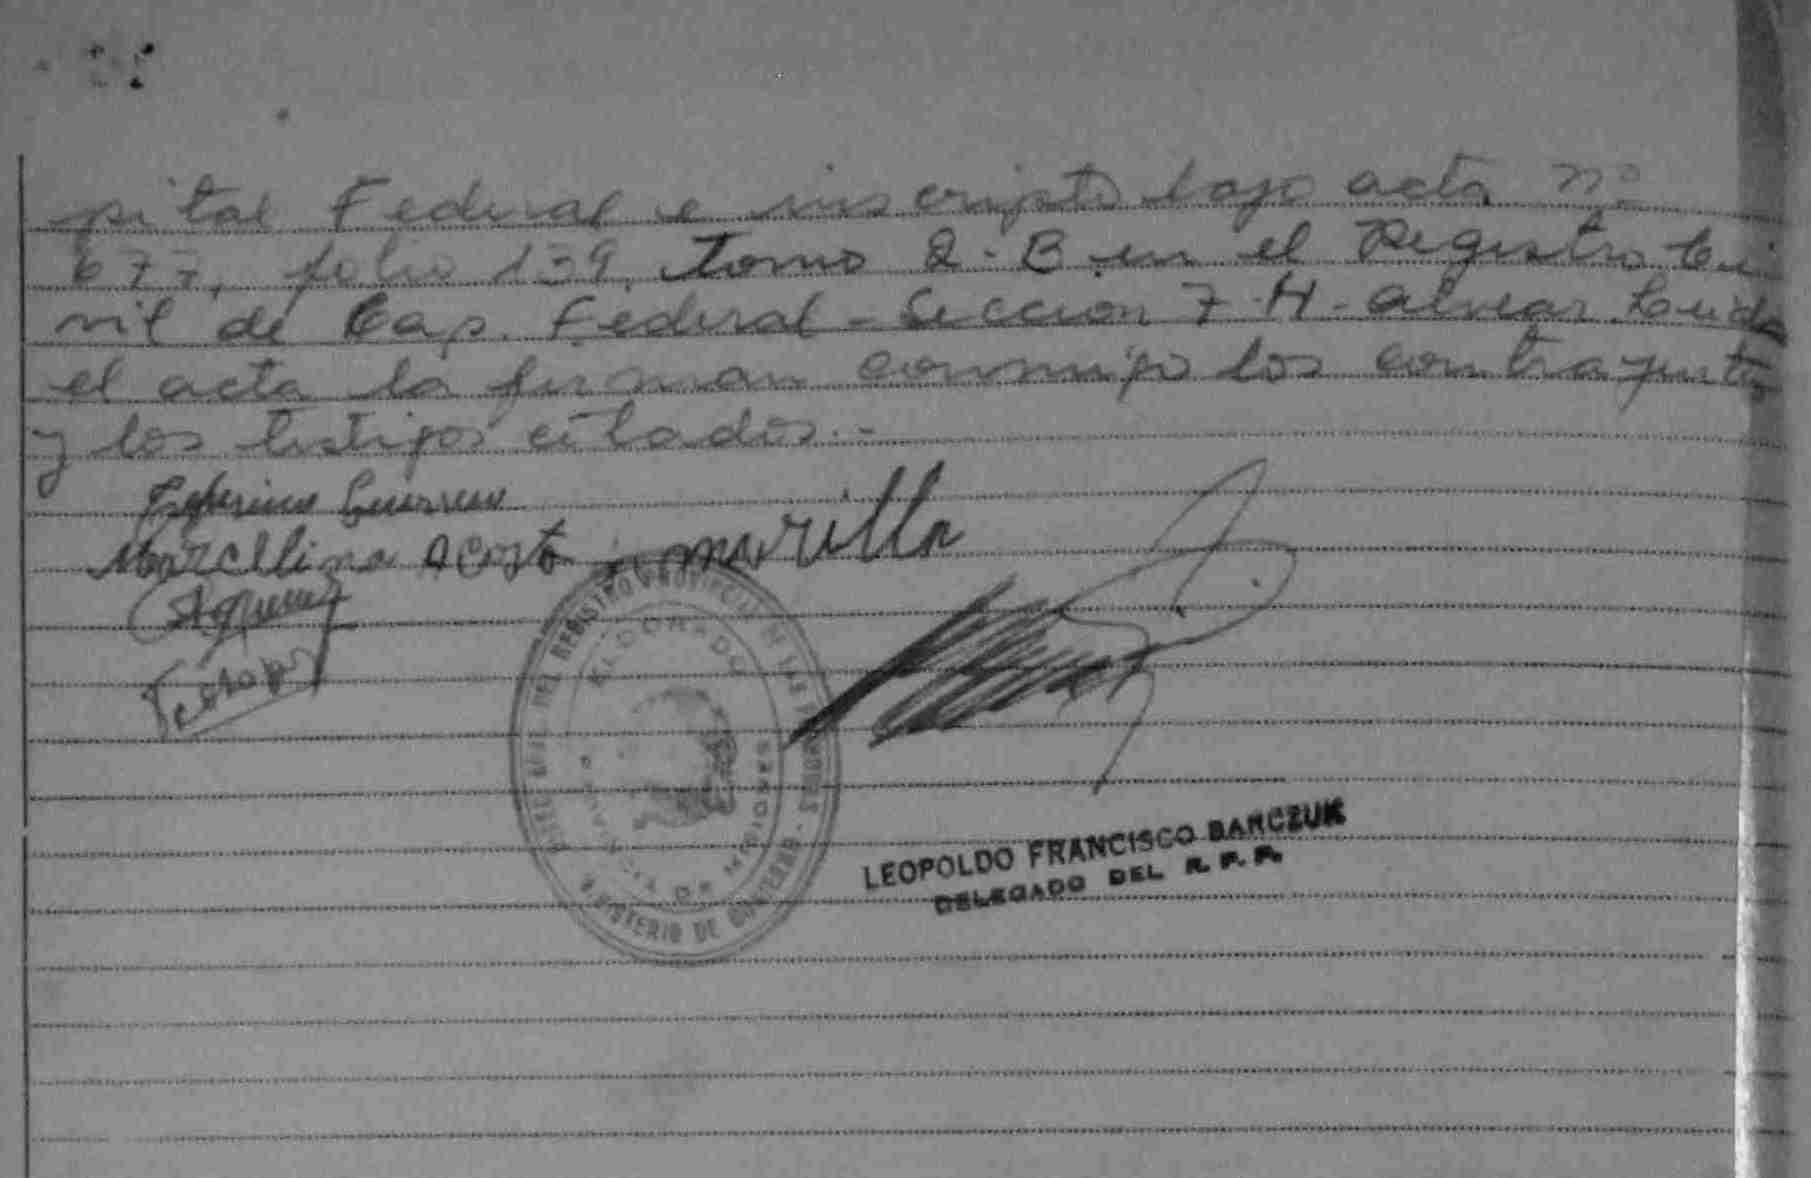 pital Federal e inscripto bajo acta nº
677, folio 139, Tomo 2-B en el Registro Ci
vil de Cap. Federal - Seccion 7-H- alvear. Leida
el acta la firman conmigo los contrayentes
y los testigos citados.-
Guerrero
Marcelina Acosta murilla
REGISTRO PROVINCIAL DE LAS PERSONAS
ELDORADO
PROVINCIA DE MISIONES
MINISTERIO DE GOBIERNO
LEOPOLDO FRANCISCO BARCZUK
DELEGADO DEL R. P. P.